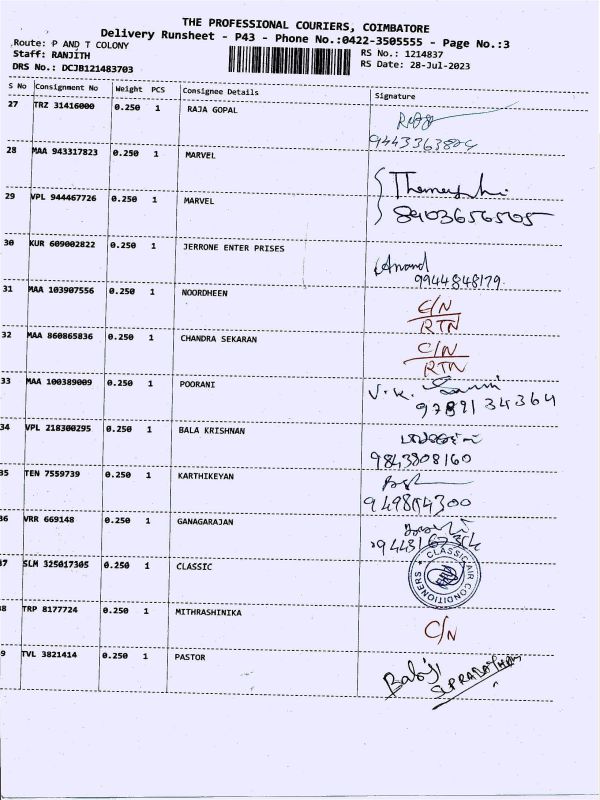 THE PROFESSIONAL COURIERS, COIMBATORE
Delivery Runsheet - P43 - Phone No.:0422-3505555 - Page No.:3
Route: P AND T COLONY
Staff: RANJITH
DRS No.: DCJB121483703
RS No.: 1214837
RS Date: 28-Jul-2023
S No Consignment No Weight PCS Consignee Details Signature
27 TRZ 31416000 0.250 1 RAJA GOPAL
28 MAA 943317823 0.250 1 MARVEL
29 VPL 944467726 0.250 1 MARVEL
8903656505
30 KUR 609002822 0.250 1 JERRONE ENTER PRISES
Anand
9944848179
31 MAA 103907556 0.250 1 NOORDHEEN C/N
RTN
32 MAA 860865836 0.250 1 CHANDRA SEKARAN C/N
RTN
33 MAA 100389009 0.250 1 POORANI V.K.
9789134364
34 VPL 218300295 0.250 1 BALA KRISHNAN
9843808160
35 TEN 7559739 0.250 1 KARTHIKEYAN
36 VRR 669148 0.250 1 GANAGARAJAN
37 SLM 325017305 0.250 1 CLASSIC CLASSIC AIR CONDITIONERS
38 TRP 8177724 0.250 1 MITHRASHINIKA C/N
9 TVL 3821414 0.250 1 PASTOR Babji